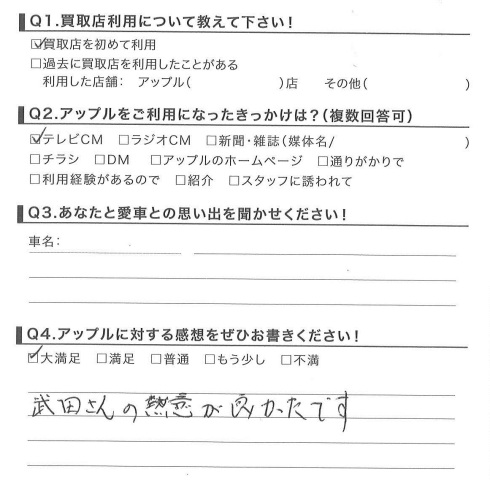 Q1.買取店利用について教えて下さい！
☑買取店を初めて利用
□過去に買取店を利用したことがある
利用した店舗： アップル（　　　　　）店　　その他（　　　　　）
Q2.アップルをご利用になったきっかけは？（複数回答可）
☑テレビCM　□ラジオCM　□新聞・雑誌（媒体名/　　　　　）
□チラシ　□DM　□アップルのホームページ　□通りがかりで
□利用経験があるので　□紹介　□スタッフに誘われて
Q3.あなたと愛車との思い出を聞かせください！
車名：
Q4.アップルに対する感想をぜひお書きください！
☑大満足　□満足　□普通　□もう少し　□不満
武田さんの熱意が良かたです